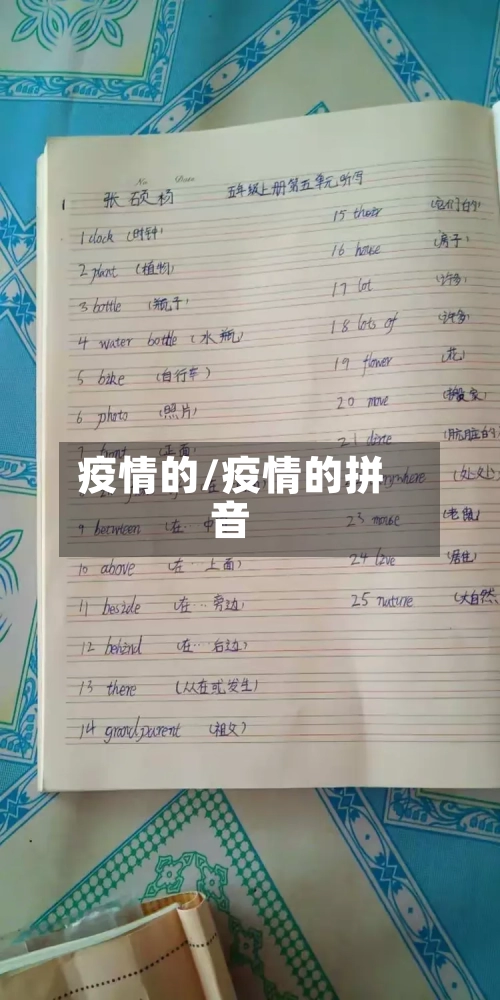 No
Date
张硕杨 五年级上册第五单元听写
1 clock (时钟)
2 plant (植物)
3 bottle (瓶子)
4 water bottle (水瓶)
5 bike (自行车)
6 photo (照片)
7 front (正面)
疫情的/疫情的拼
音
9 between (在…中
10 above (在…上面)
11 beside (在…旁边)
12 behind (在…后边)
13 there (从在或发生)
14 grandparent (祖父)
15 their (它们的)
16 house (房子)
17 lot (许多)
18 lots of (许多)
19 flower (花)
20 move (搬家)
21 dirte (肮脏的)
everywhere (处处)
23 mouse (老鼠)
24 live (居住)
25 nature (大自然